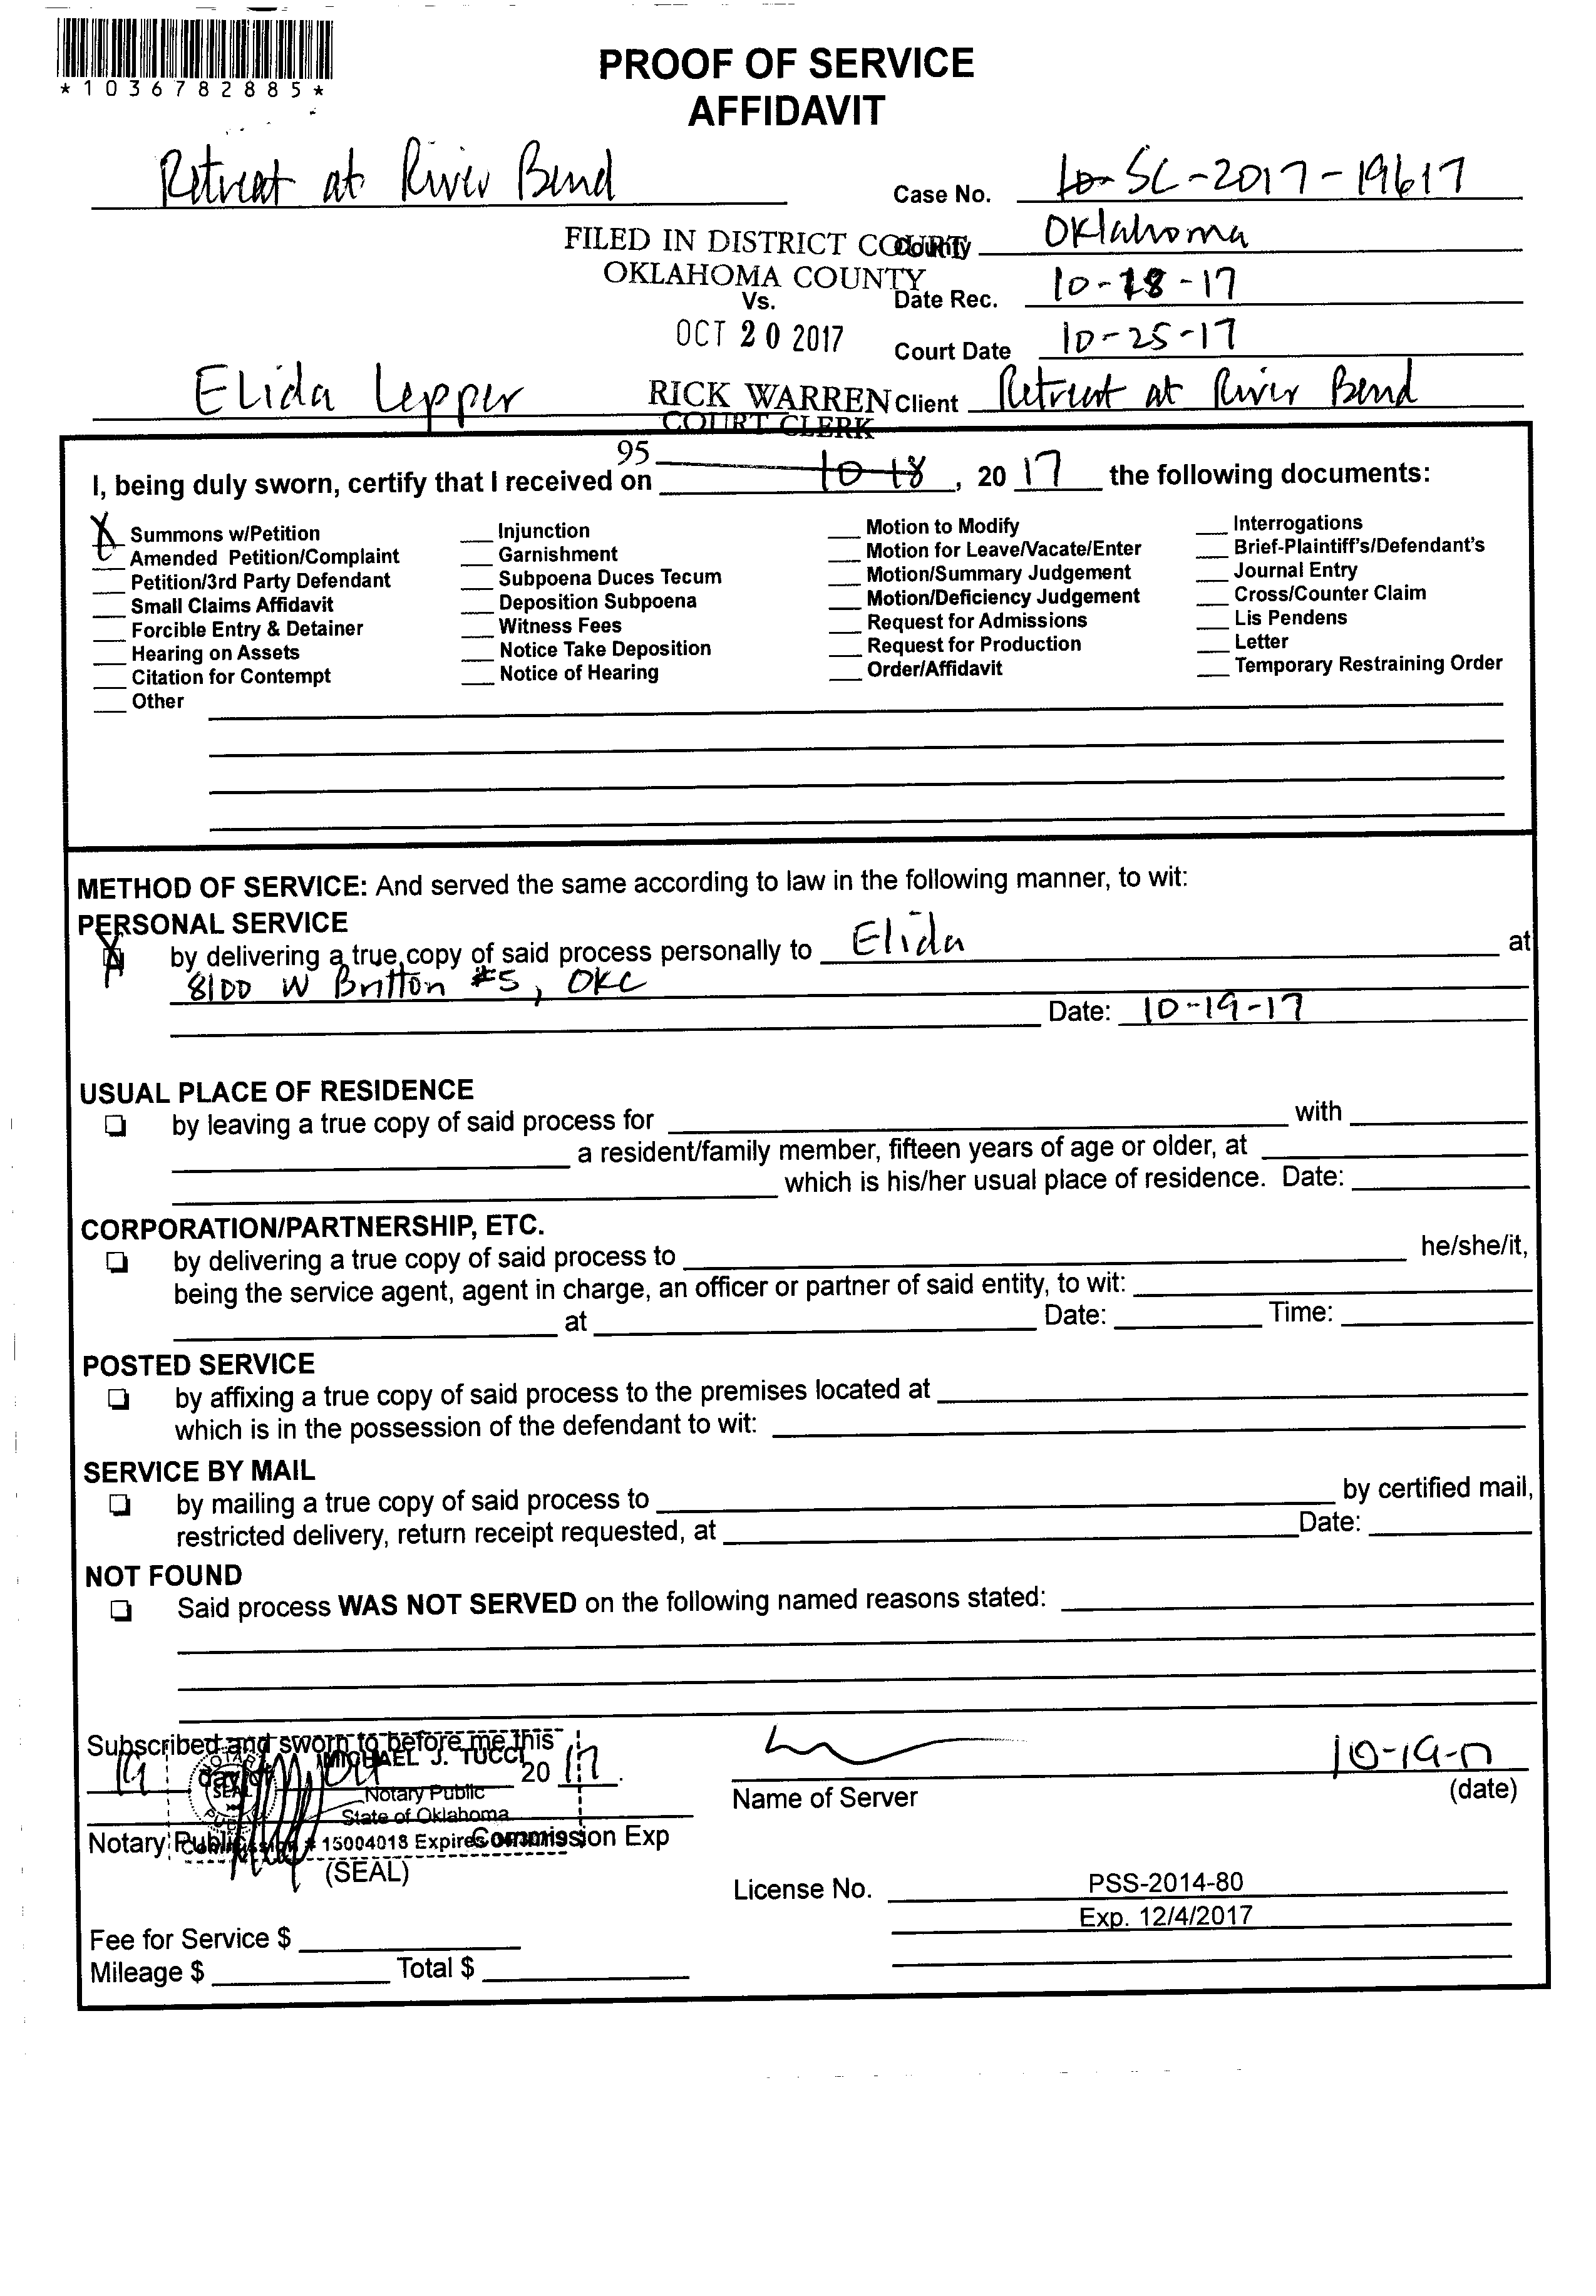 *1036782885*
PROOF OF SERVICE
AFFIDAVIT
Retreat at River Bend
Case No. SC-2017-19617
FILED IN DISTRICT COURT
County Oklahoma
OKLAHOMA COUNTY
Vs.
Date Rec. 10-18-17
OCT 20 2017
Court Date 10-25-17
Elida Lepper
RICK WARREN
COURT CLERK
Client Retreat at River Bend
95
I, being duly sworn, certify that I received on 10-18, 2017 the following documents:
X Summons w/Petition
Amended Petition/Complaint
Petition/3rd Party Defendant
Small Claims Affidavit
Forcible Entry & Detainer
Hearing on Assets
Citation for Contempt
Other
Injunction
Garnishment
Subpoena Duces Tecum
Deposition Subpoena
Witness Fees
Notice Take Deposition
Notice of Hearing
Motion to Modify
Motion for Leave/Vacate/Enter
Motion/Summary Judgement
Motion/Deficiency Judgement
Request for Admissions
Request for Production
Order/Affidavit
Interrogations
Brief-Plaintiff's/Defendant's
Journal Entry
Cross/Counter Claim
Lis Pendens
Letter
Temporary Restraining Order
METHOD OF SERVICE: And served the same according to law in the following manner, to wit:
PERSONAL SERVICE
X by delivering a true copy of said process personally to Elida at
8100 W Britton #5, OKC
Date: 10-19-17
USUAL PLACE OF RESIDENCE
by leaving a true copy of said process for with
a resident/family member, fifteen years of age or older, at
which is his/her usual place of residence. Date:
CORPORATION/PARTNERSHIP, ETC.
by delivering a true copy of said process to he/she/it,
being the service agent, agent in charge, an officer or partner of said entity, to wit:
at Date: Time:
POSTED SERVICE
by affixing a true copy of said process to the premises located at
which is in the possession of the defendant to wit:
SERVICE BY MAIL
by mailing a true copy of said process to by certified mail,
restricted delivery, return receipt requested, at Date:
NOT FOUND
Said process WAS NOT SERVED on the following named reasons stated:
Subscribed and sworn to before me this
19 day of Oct 2017.
MICHAEL J. TUCCI
Notary Public
State of Oklahoma
Commission # 15004018 Expires
NOTARY PUBLIC
SEAL
Notary Public Commission Exp
(SEAL)
10-19-17
Name of Server (date)
License No. PSS-2014-80
Exp. 12/4/2017
Fee for Service $
Mileage $ Total $